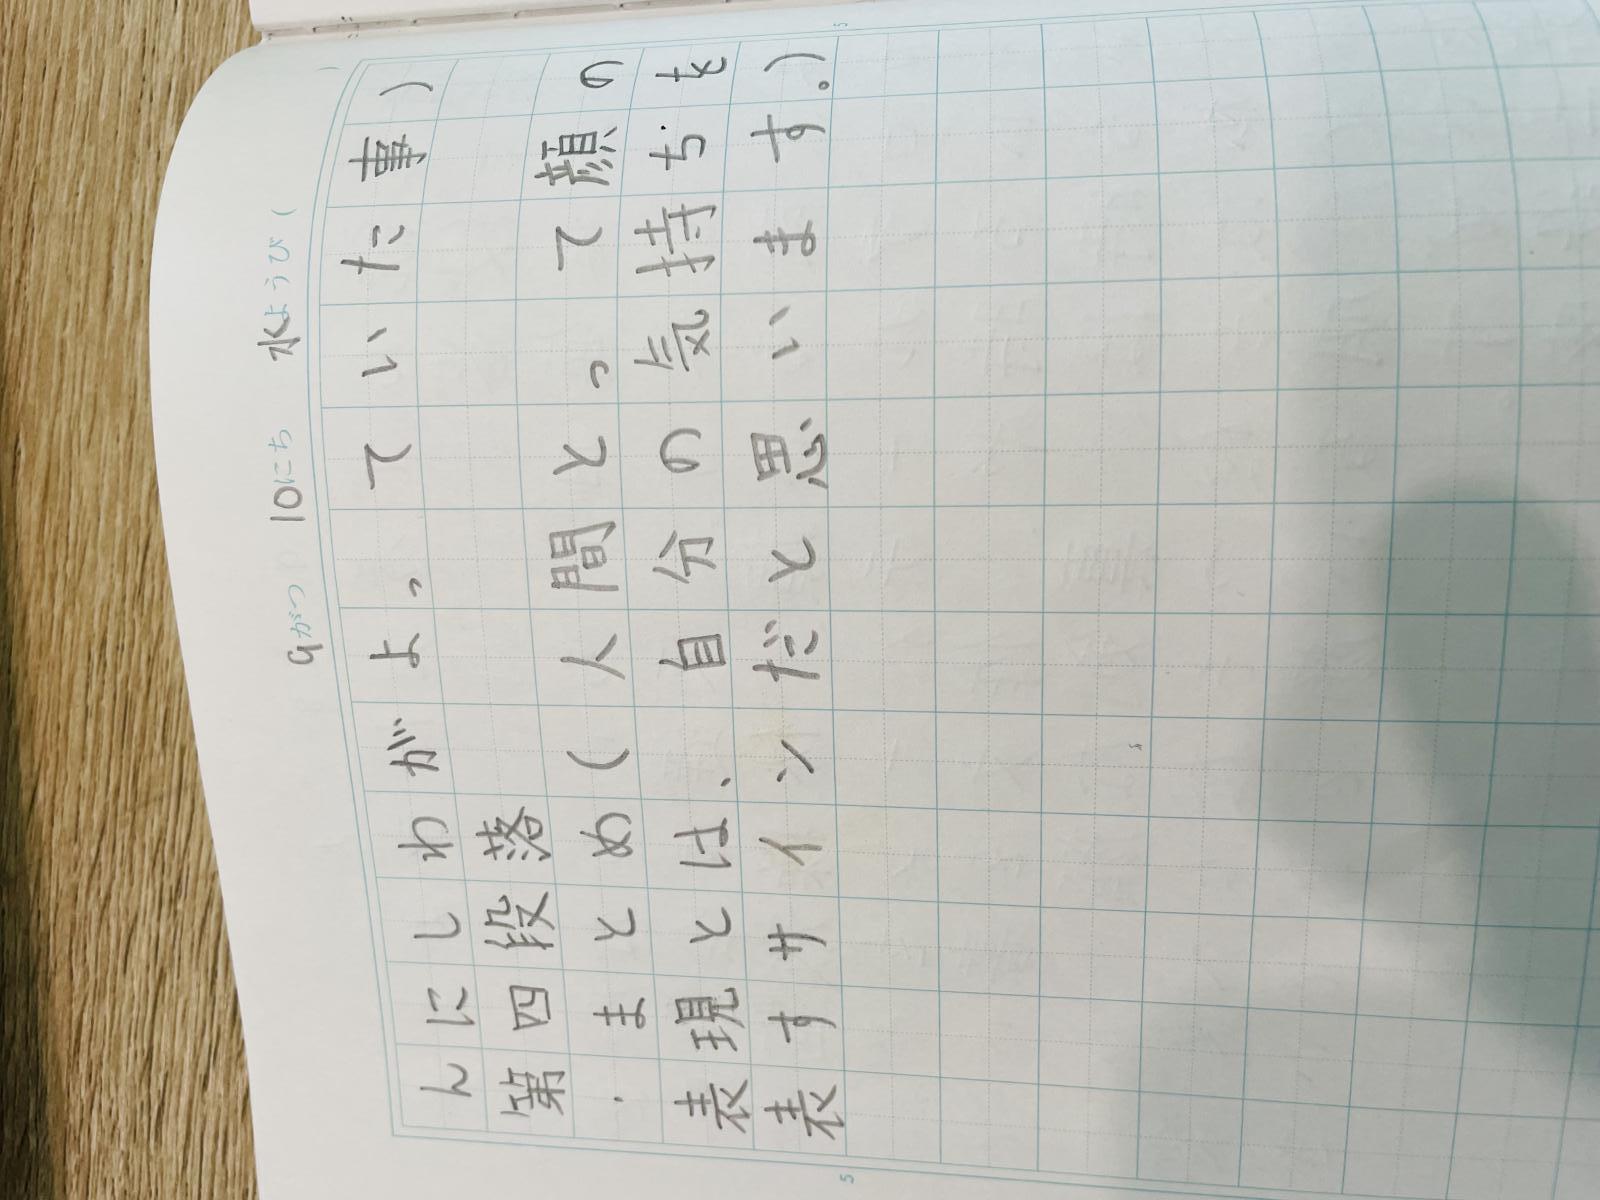 9がつ 10にち 水ようび (
んにしわがよっていた事)
第四段落
・まとめ(人間とって顔の
表現とは、自分の気持ちを
表すサインだと思います。)